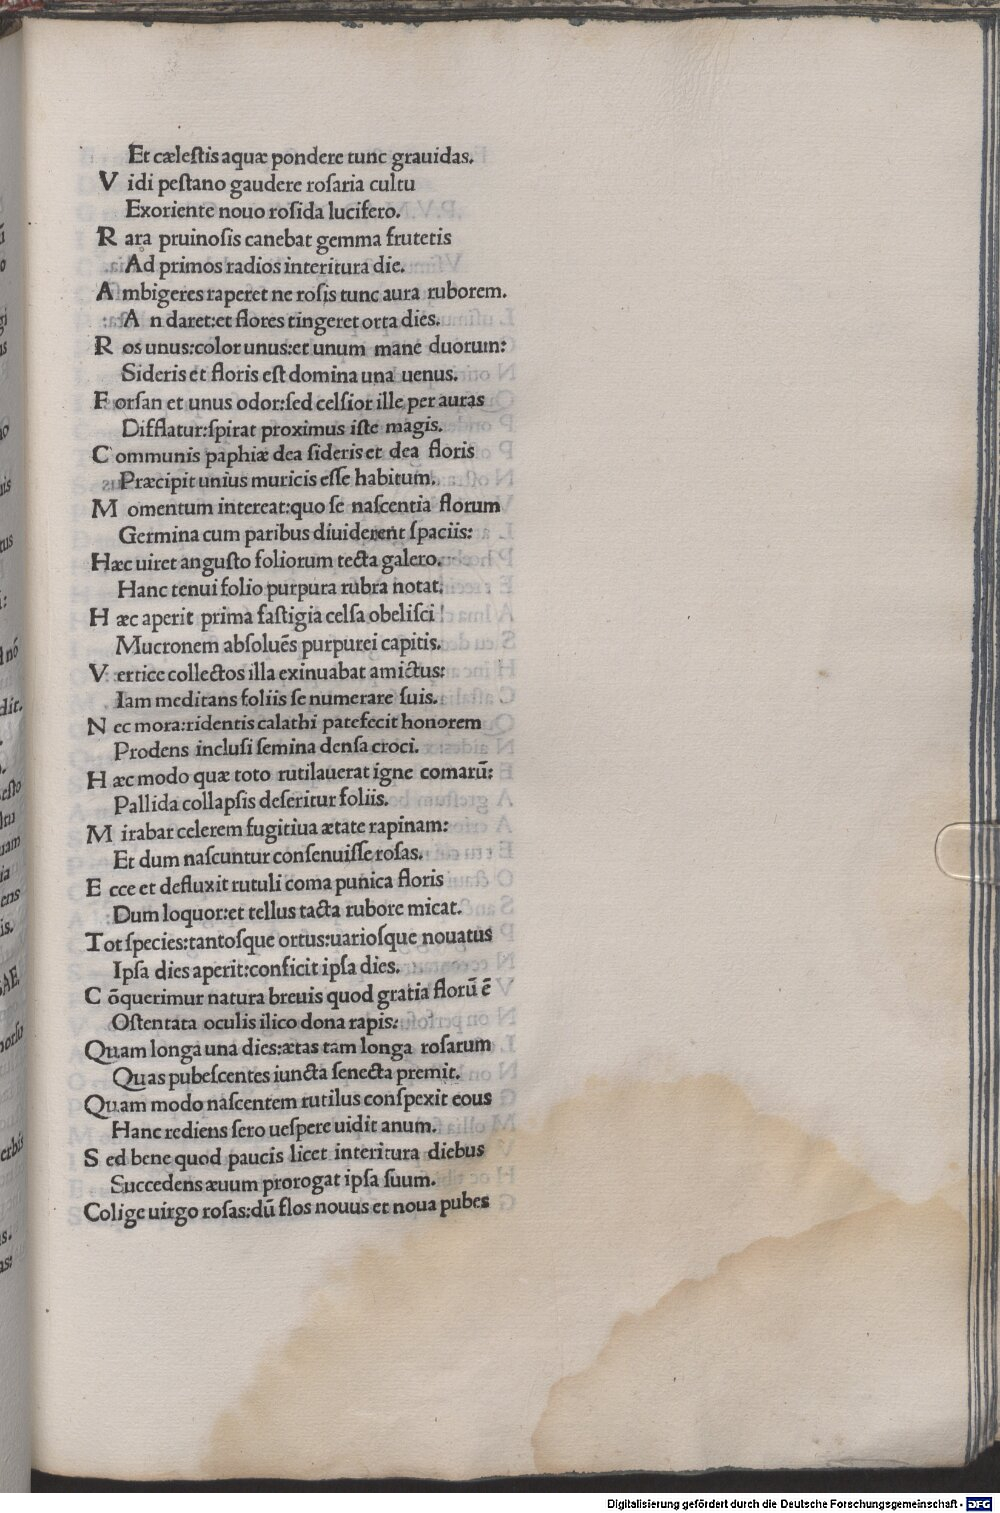 Et cæleſtis aquæ pondere tunc grauidas.
V idi peſtano gaudere roſaria cultu
Exoriente nouo roſida lucifero.
R ara pruinoſis canebat gemma frutetis
Ad primos radios interitura die.
A mbigeres raperet ne roſis tunc aura ruborem.
A n daret:et flores tingeret orta dies.
R os unus:color unus:et unum mane duorum:
Sideris et floris eſt domina una uenus.
F orſan et unus odor:ſed celſior ille per auras
Difflatur:ſpirat proximus iſte magis.
C ommunis paphiæ dea ſideris et dea floris
Præcipit unius muricis eſſe habitum.
M omentum intereat:quo ſe naſcentia florum
Germina cum paribus diuiderent ſpaciis:
Hæc uiret anguſto foliorum tecta galero.
Hanc tenui folio purpura rubra notat.
H æc aperit prima faſtigia celſa obeliſci
Mucronem abſoluēs purpurei capitis.
V ertice collectos illa exinuabat amictus:
Iam meditans foliis ſe numerare ſuis.
N ec mora:ridentis calathi patefecit honorem
Prodens incluſi ſemina denſa croci.
H æc modo quæ toto rutilauerat igne comarū:
Pallida collapſis deſeritur foliis.
M irabar celerem fugitiua ætate rapinam:
Et dum naſcuntur conſenuiſſe roſas.
E cce et defluxit rutuli coma punica floris
Dum loquor:et tellus tacta rubore micat.
Tot ſpecies:tantoſque ortus:uarioſque nouatus
Ipſa dies aperit:conficit ipſa dies.
C ōquerimur natura breuis quod gratia florū ē
Oſtentata oculis ilico dona rapis:
Quam longa una dies:ætas tam longa roſarum
Quas pubeſcentes iuncta ſenecta premit.
Quam modo naſcentem rutilus conſpexit eous
Hanc rediens ſero ueſpere uidit anum.
S ed bene quod paucis licet interitura diebus
Succedens æuum prorogat ipſa ſuum.
Colige uirgo roſas:dū flos nouus et noua pubes
Digitalisierung gefördert durch die Deutsche Forschungsgemeinschaft - DFG